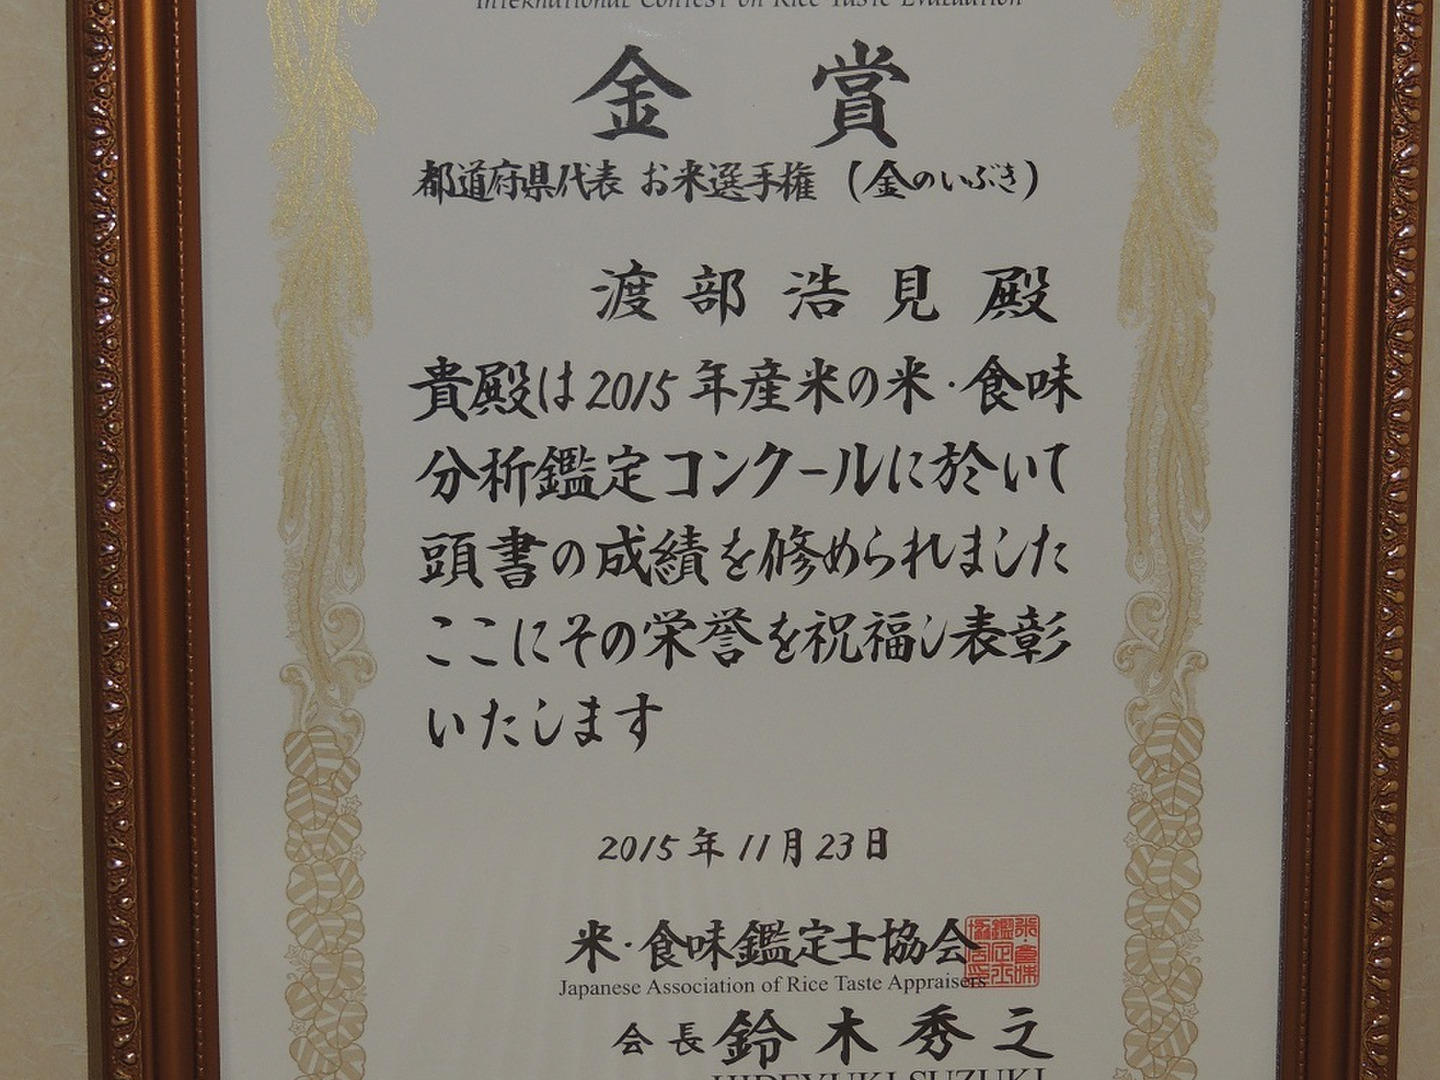 International Contest on Rice Taste Evaluation
金賞
都道府県代表 お米選手権 (金のいぶき)
渡部浩見殿
貴殿は2015年産米の米・食味
分析鑑定コンクールに於いて
頭書の成績を修められました
ここにその栄誉を祝福し表彰
いたします
2015年11月23日
米・食味鑑定士協会
Japanese Association of Rice Taste Appraisers
会長 鈴木秀之
HIDEYUKI SUZUKI